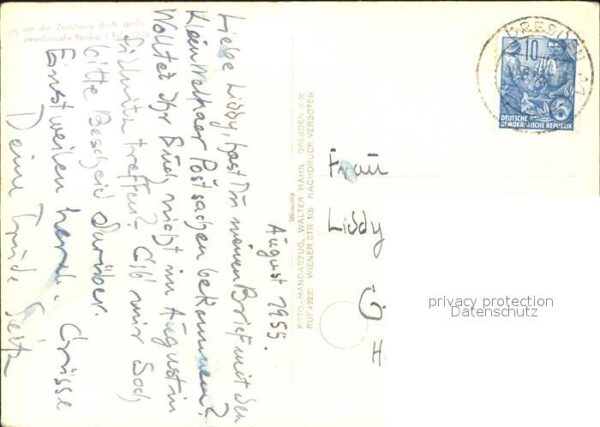 vor der Zerstörung durch
amerikanische Bomber
August 1955.
Liebe Liddy, hast Du meinen Brief mit den
Klein Welkaer Postsachen bekommen?
Wolltet Ihr Euch nicht im August in
treffen? Gib mir doch
bitte Bescheid darüber.
Einstweilen herzl. Grüsse
Deine Trude Seitz
FOTO-HANDABZUG, WALTER HAHN, DRESDEN A 1K
RUF 41220 WIENER STR. 108 NACHDRUCK VERBOTEN
DRESDEN
10
DEUTSCHE
DEMOKRATISCHE REPUBLIK
5
Frau
Liddy
G
H
privacy protection
Datenschutz